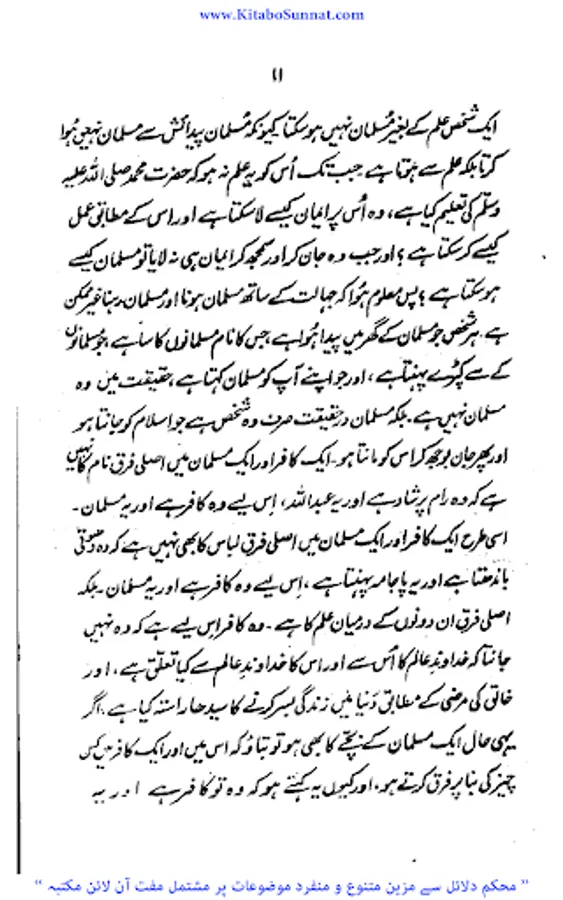 www.KitaboSunnat.com
۱۱
ایک شخص علم کے بغیر مُسلمان نہیں ہوسکتا کیونکہ مُسلمان پیدائش سے مسلمان نہیں ہُوا
کرتا بلکہ علم سے ہوتا ہے جب تک اُس کو یہ علم نہ ہو کہ حضرت محمد صلی اللہ علیہ
وسلم کی تعلیم کیا ہے، وہ اُس پر ایمان کیسے لا سکتا ہے اور اس کے مطابق عمل
کیسے کر سکتا ہے ؟ اور جب وہ جان کر اور سمجھ کر ایمان ہی نہ لایا تو مسلمان کیسے
ہوسکتا ہے ؟ پس معلوم ہُوا کہ جہالت کے ساتھ مسلمان ہونا اور مسلمان رہنا غیر ممکن
ہے۔ ہر شخص جو مسلمان کے گھر میں پیدا ہُوا ہے، جس کا نام مسلمانوں کا سا ہے، جو مسلمانوں
کے سے کپڑے پہنتا ہے، اور جو اپنے آپ کو مسلمان کہتا ہے، حقیقت میں وہ
مسلمان نہیں ہے۔ بلکہ مسلمان در حقیقت صرف وہ شخص ہے جو اسلام کو جانتا ہو
اور پھر جان بوجھ کر اس کو مانتا ہو۔ ایک کافر اور ایک مسلمان میں اصلی فرق نام کا نہیں
ہے کہ وہ رام پرشاد ہے اور یہ عبداللہ، اِس لیے وہ کافر ہے اور یہ مسلمان۔
اسی طرح ایک کافر اور ایک مسلمان میں اصلی فرق لباس کا بھی نہیں ہے کہ وہ دھوتی
باندھتا ہے اور یہ پاجامہ پہنتا ہے، اِس لیے وہ کافر ہے اور یہ مسلمان۔ بلکہ
اصلی فرق ان دونوں کے درمیان علم کا ہے۔ وہ کافر اِس لیے ہے کہ وہ نہیں
جانتا کہ خداوندِ عالم کا اُس سے اور اس کا خداوندِ عالم سے کیا تعلّق ہے، اور
خالق کی مرضی کے مطابق دُنیا میں زندگی بسر کرنے کا سیدھا راستہ کیا ہے۔ اگر
یہی حال ایک مسلمان کے بچّے کا بھی ہو تو بتاؤ کہ اس میں اور ایک کافر میں کس
چیز کی بنا پر فرق کرتے ہو، اور کیوں یہ کہتے ہو کہ وہ تو کافر ہے اور یہ
" محکم دلائل سے مزین متنوع و منفرد موضوعات پر مشتمل مفت آن لائن مکتبہ "